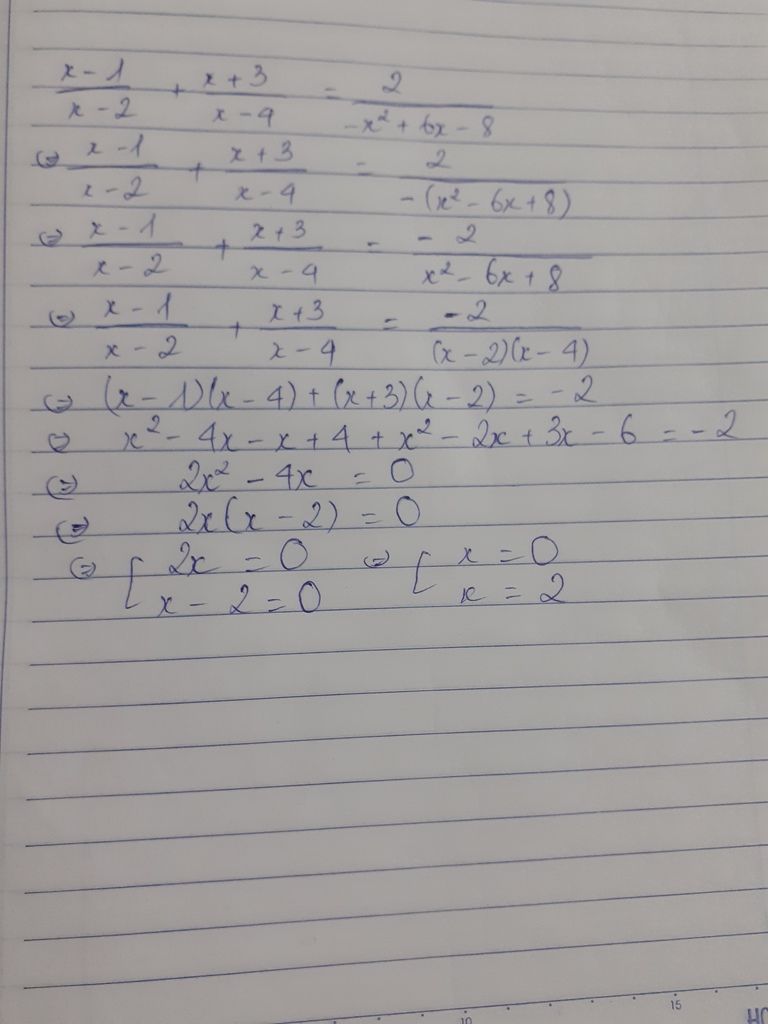 \frac{x-1}{x-2} + \frac{x+3}{x-4} = \frac{2}{-x^2+6x-8}
⇔ \frac{x-1}{x-2} + \frac{x+3}{x-4} = \frac{2}{-(x^2-6x+8)}
⇔ \frac{x-1}{x-2} + \frac{x+3}{x-4} = \frac{-2}{x^2-6x+8}
⇔ \frac{x-1}{x-2} + \frac{x+3}{x-4} = \frac{-2}{(x-2)(x-4)}
⇔ (x-1)(x-4) + (x+3)(x-2) = -2
⇔ x^2 - 4x - x + 4 + x^2 - 2x + 3x - 6 = -2
⇔ 2x^2 - 4x = 0
⇔ 2x(x-2) = 0
⇔ [ 2x = 0 ⇔ [ x = 0
x - 2 = 0 x = 2
10 15